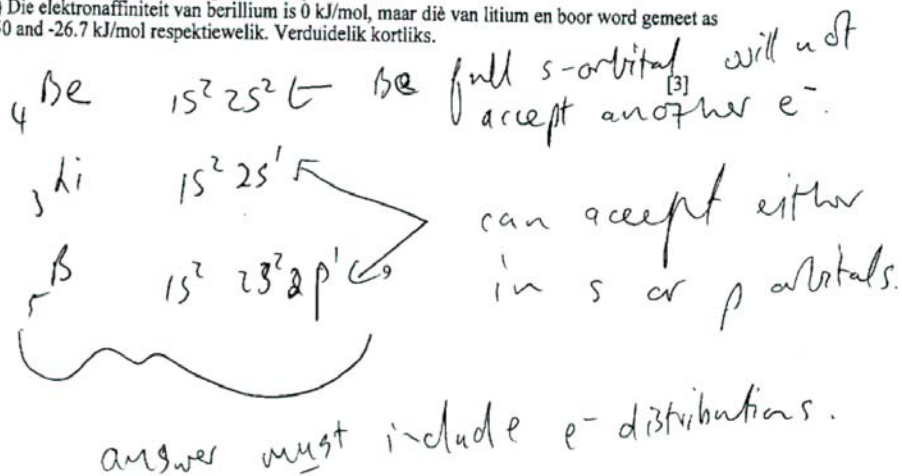 Die elektronaffiniteit van berillium is 0 kJ/mol, maar diè van litium en boor word gemeet as
0 and -26.7 kJ/mol respektiewelik. Verduidelik kortliks.
₄Be 1s² 2s² ← Be full s-orbital will not
[3]
accept another e⁻.
₃Li 1s² 2s¹
can accept either
₅B 1s² 2s²2p¹ in s or p orbitals.
answer must include e⁻ distributions.